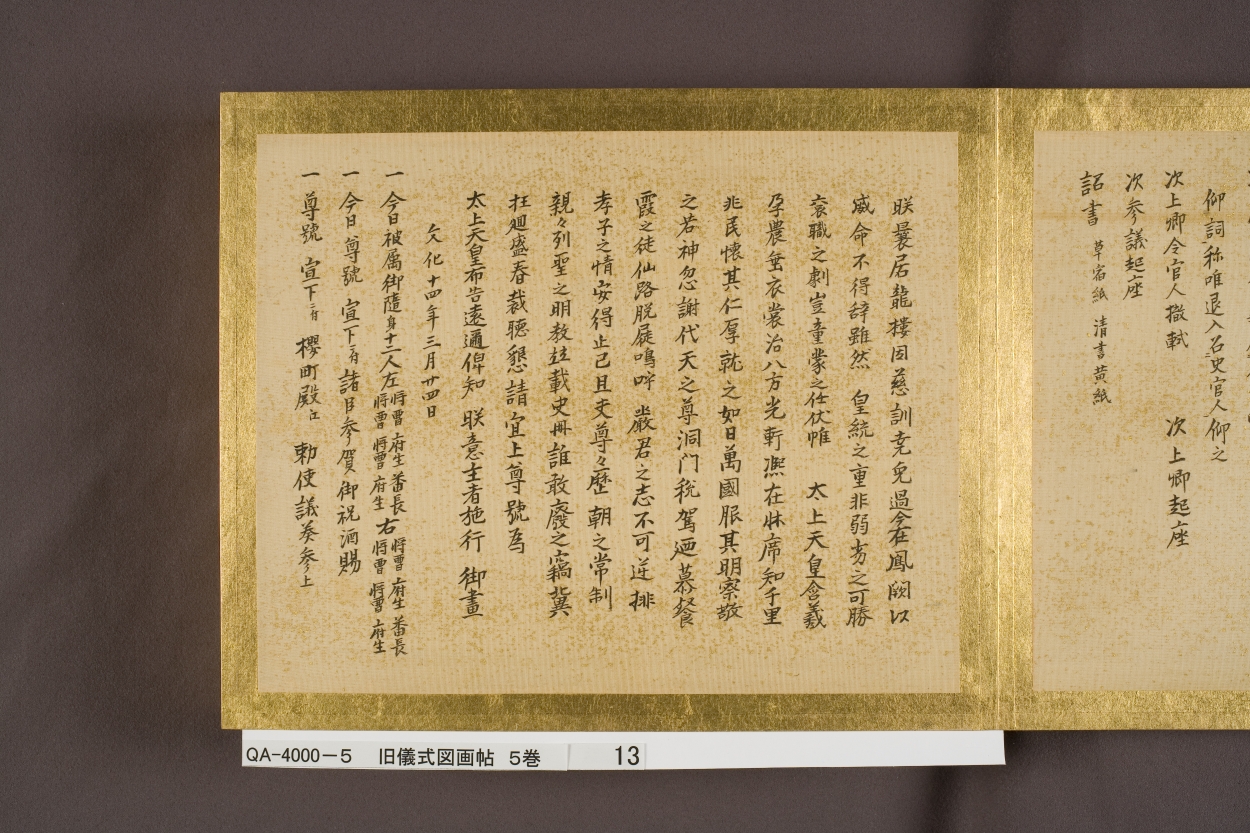 仰詞称唯退入召史官人仰之
次上卿令官人撤軾　次上卿起座
次参議起座
詔書　草宿紙　清書黄紙
朕曩居龍樓因慈訓克免過今在鳳闕以
威命不得辞雖然　皇統之重非弱劣之可勝
袞職之劇豈童蒙之仕伏惟　太上天皇含羲
孕農垂衣裳治八方光軒凞在牀席知千里
兆民懐其仁厚就之如日萬國服其明察敬
之若神忽謝代天之尊洞门税駕廼慕餐
霞之徒仙路脱屣鳴呼　嚴君之志不可逆排
孝子之情安得止已且夫尊々歴朝之常制
親々列聖之明教竝載史冊誰敢廢之竊冀
抂廻盛眷裁聴懇請宜上尊號為
太上天皇布告遠迩俾知　朕意主者施行　御畫
文化十四年三月廿四日
一今日被属御随身十二人左将曹将曹府生府生番長右将曹将曹府生府生番長
一今日尊號　宣下ニ付諸臣参賀御祝酒賜
一尊號　宣下ニ付　櫻町殿江　勅使議奏参上
QA-4000-5　旧儀式図画帖　5巻　13